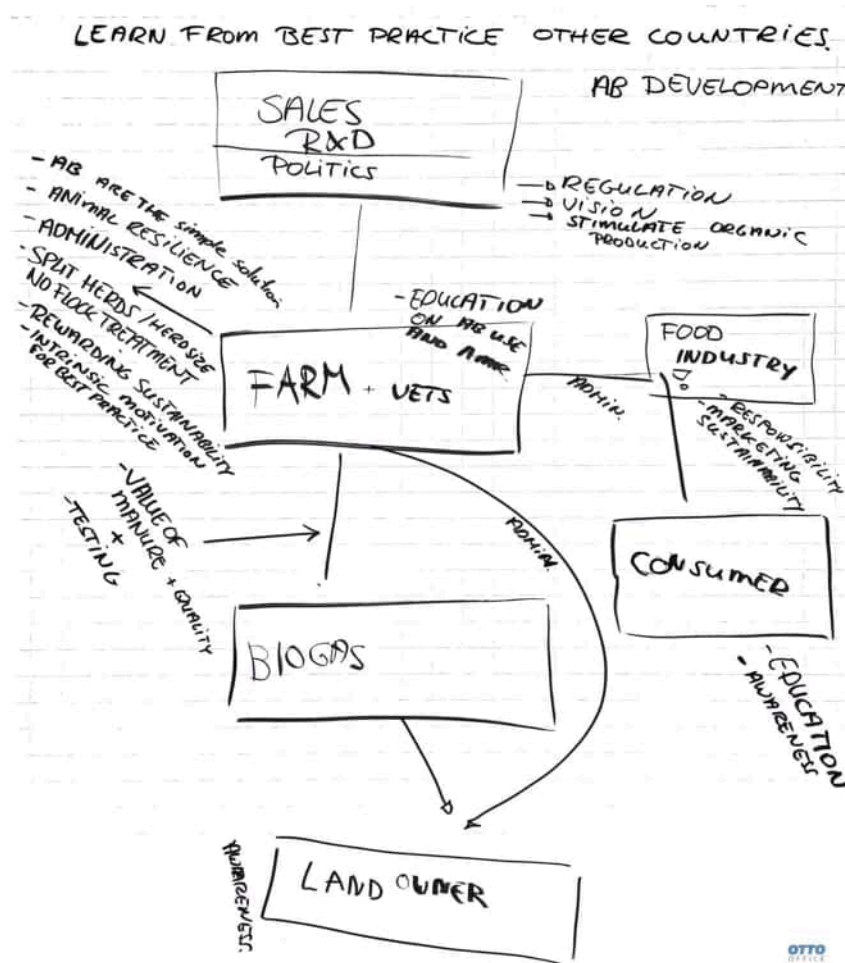 LEARN FROM BEST PRACTICE OTHER COUNTRIES.
AB DEVELOPMENT
SALES
R&D
POLITICS
REGULATION
VISION
STIMULATE ORGANIC
PRODUCTION
- AB ARE THE simple solution
- ANIMAL RESILIENCE
- ADMINISTRATION
- SPLIT HERDS/HERD SIZE
NO FLOCK TREATMENT
- REWARDING SUSTAINABILITY
- INTRINSIC MOTIVATION
FOR BEST PRACTICE
- EDUCATION
ON AB USE
AND AMR
FARM + VETS
ADMIN.
FOOD
INDUSTRY
- RESPONSIBILITY
- MARKETING
SUSTAINABILITY
CONSUMER
- EDUCATION
- AWARENESS
- VALUE OF
MANURE + QUALITY
+
- TESTING
ADMIN.
BIOGAS
LAND OWNER
AWARENESS.
OTTO
OFFICE